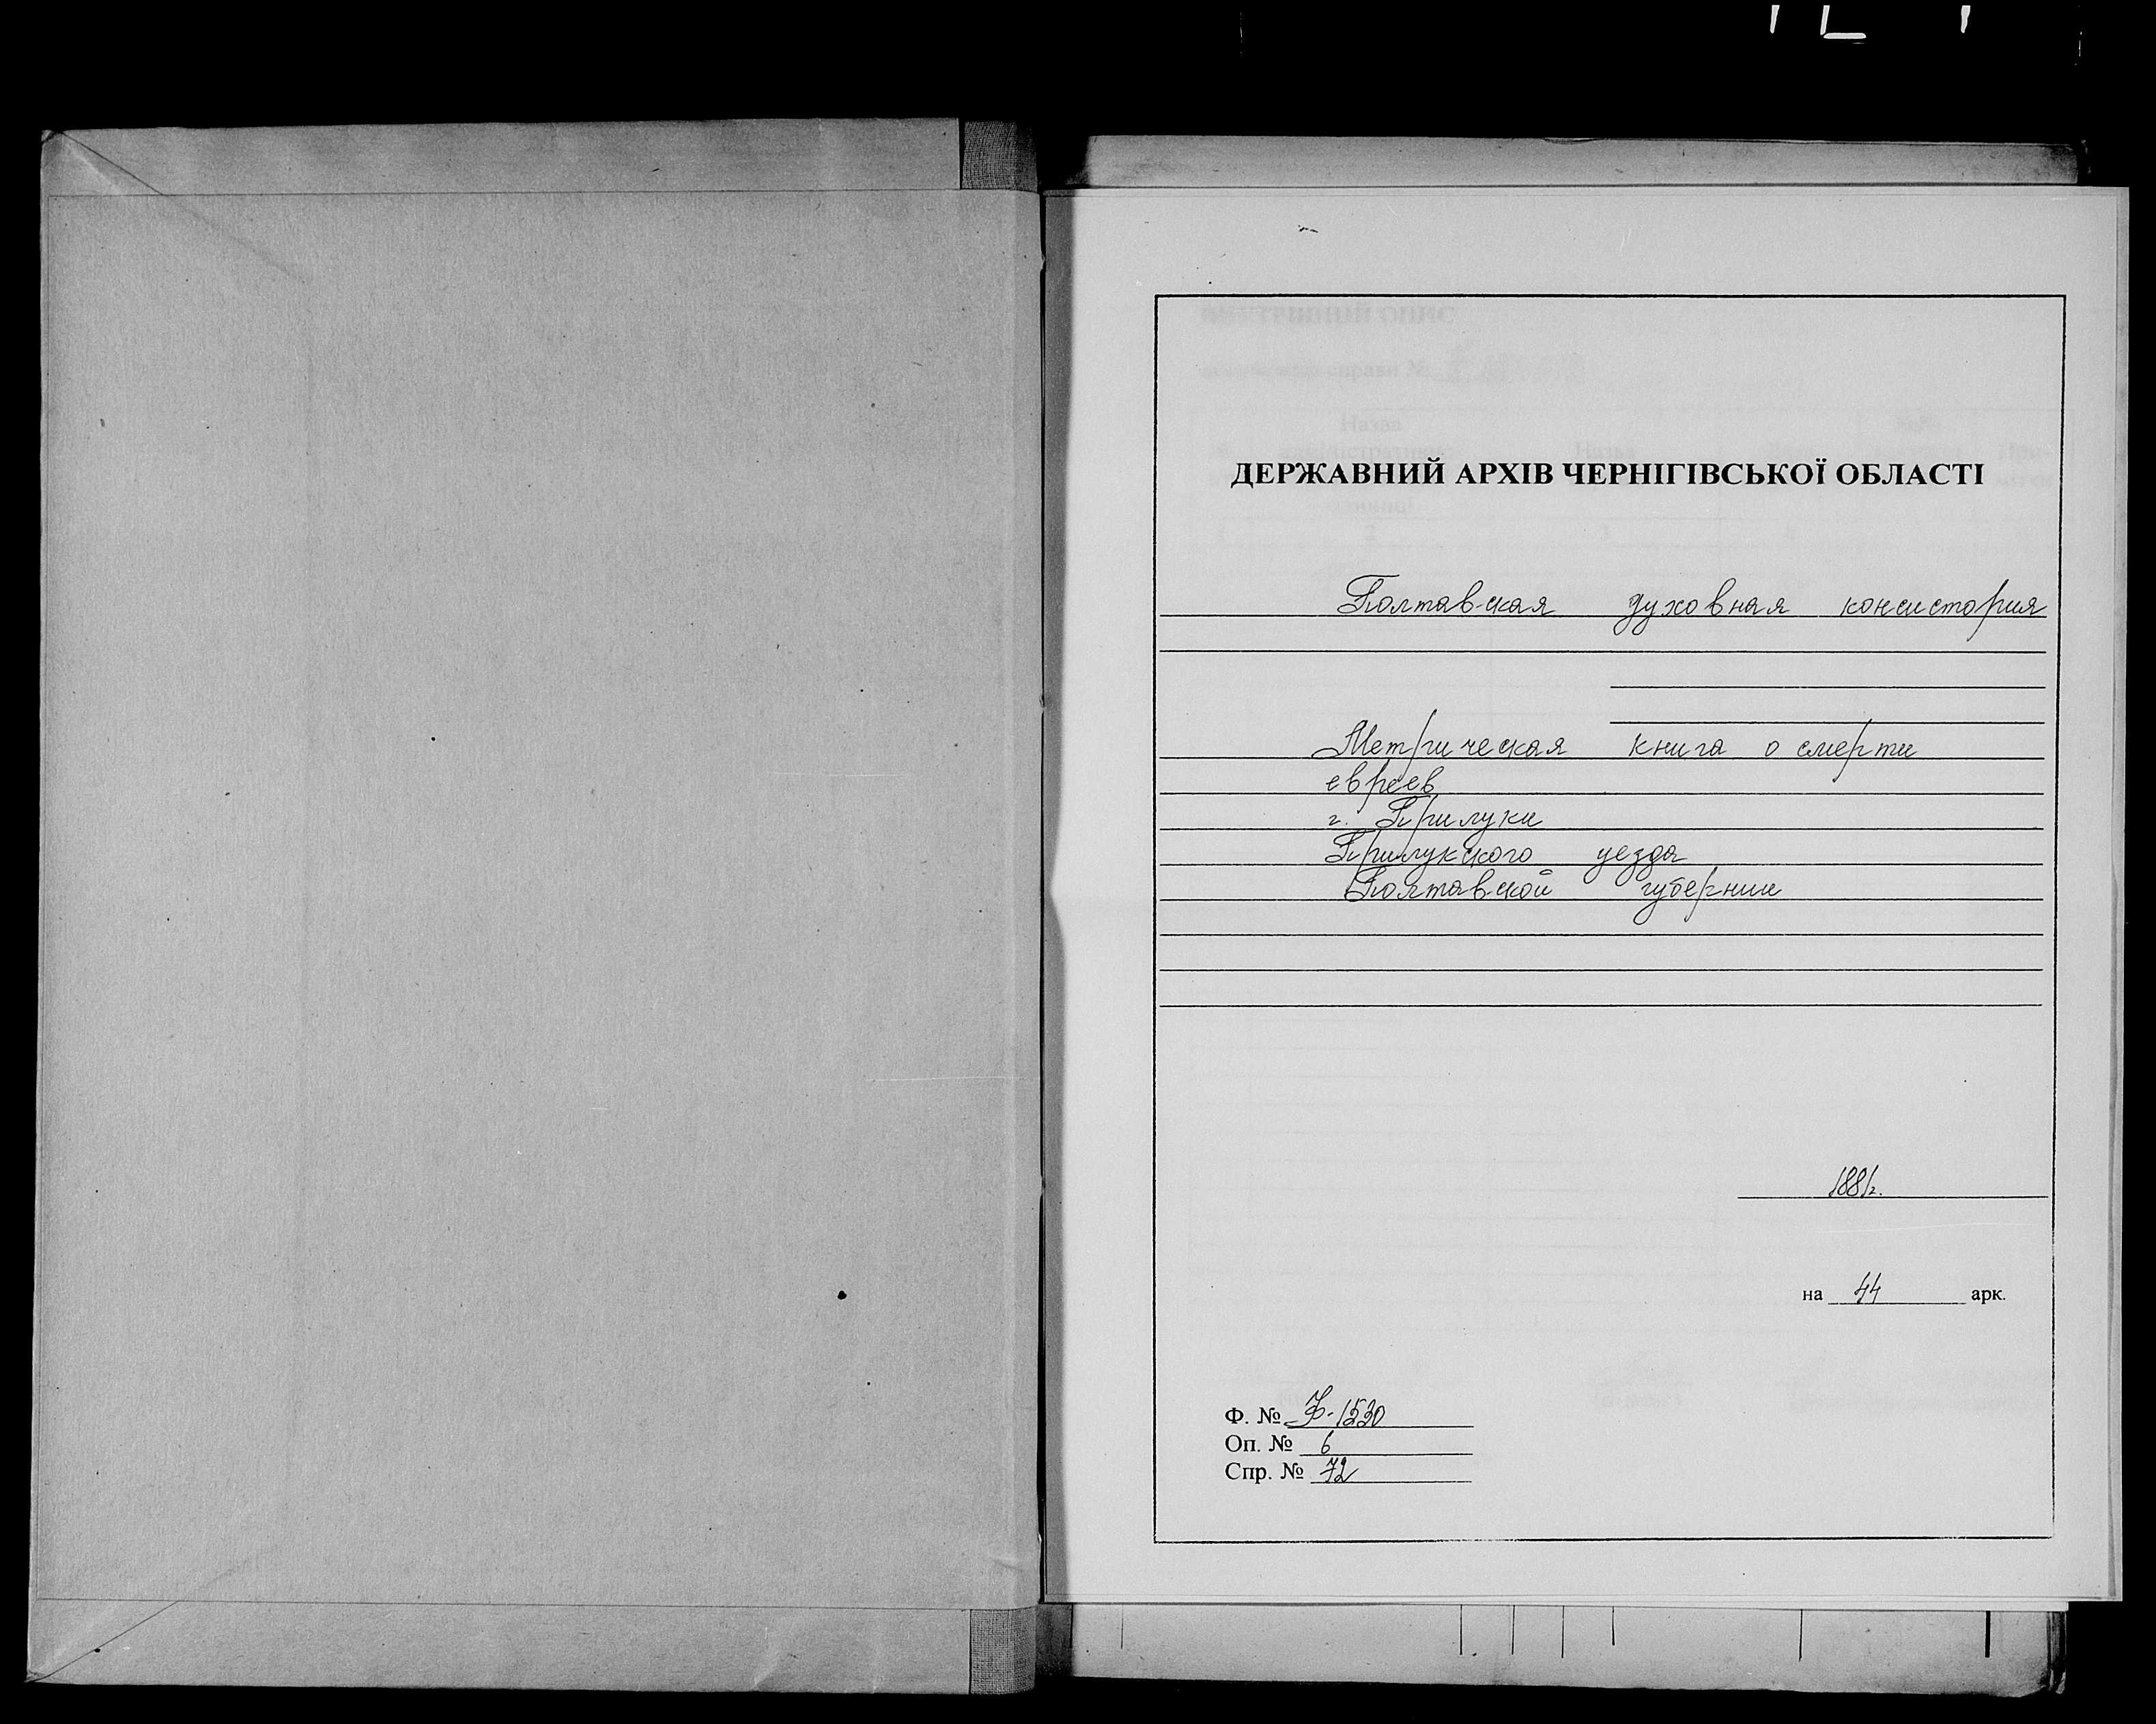 ДЕРЖАВНИЙ АРХІВ ЧЕРНІГІВСЬКОЇ ОБЛАСТІ
Полтавская духовная консистория
Метрическая книга о смерти
евреев
г. Прилуки
Прилукского уезда
Полтавской губернии
1881г.
на 44 арк.
Ф. № Ф-1530
Оп. № 6
Спр. № 72